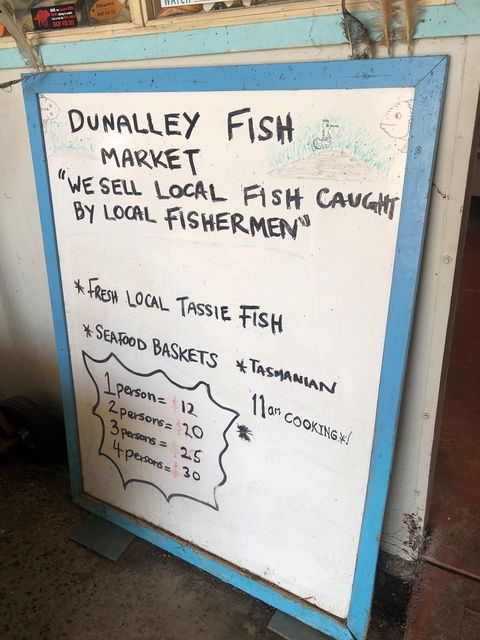 WATCH
DUNALLEY FISH
MARKET
"WE SELL LOCAL FISH CAUGHT
BY LOCAL FISHERMEN"
* FRESH LOCAL TASSIE FISH
* SEAFOOD BASKETS
1 person = $12
2 persons = $20
3 persons = $25
4 persons = $30
* TASMANIAN
11am COOKING*!
*